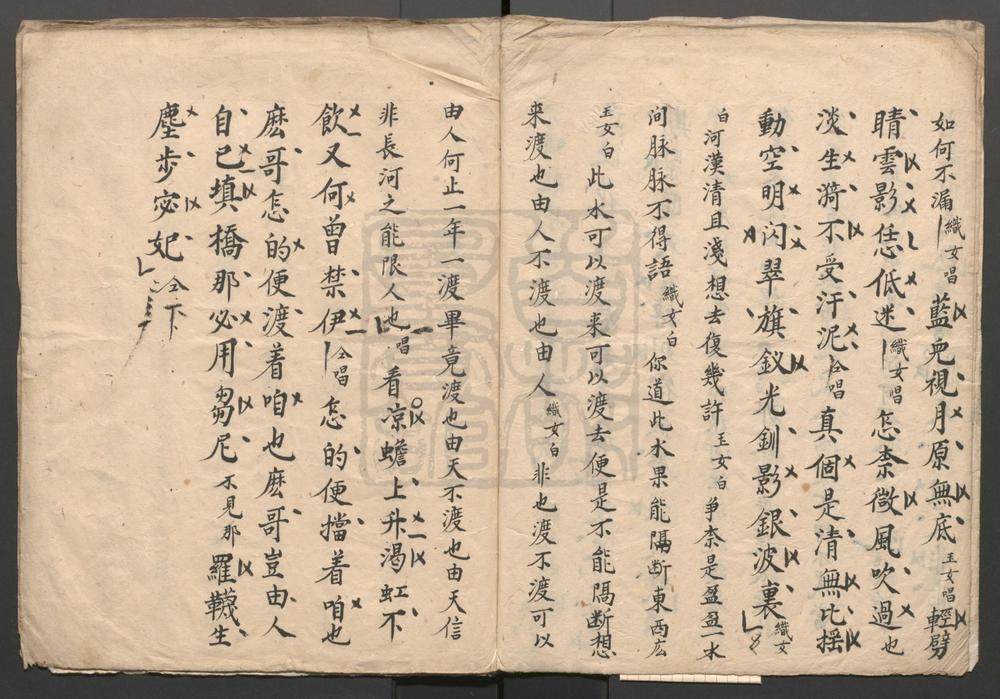 如何不漏織女唱藍兒視月原無底玉女唱輕劈
晴雲影恁低迷織女唱怎奈微風吹過也
淡生漪不受汙泥仝唱真個是清無比搖
動空明閃翠旗釵光釧影銀波裏織女
白河漢清且淺想去復幾許玉女白爭奈是盈盈一水
间脉脉不得語織女白你道此水果能隔斷東西広
玉女白此水可以渡來可以渡去便是不能隔断想
來渡也由人不渡也由人織女白非也渡不渡可以
由人何止一年一渡畢竟渡也由天不渡也由天信
非長河之能限人也唱看凉蟾上升渴虹不
飲又何曾禁伊仝唱怎的便擋着咱也
麽哥怎的便渡着咱也麽哥豈由人
自己填橋那必用芻尼不見那羅韈生
塵步宓妃仝下